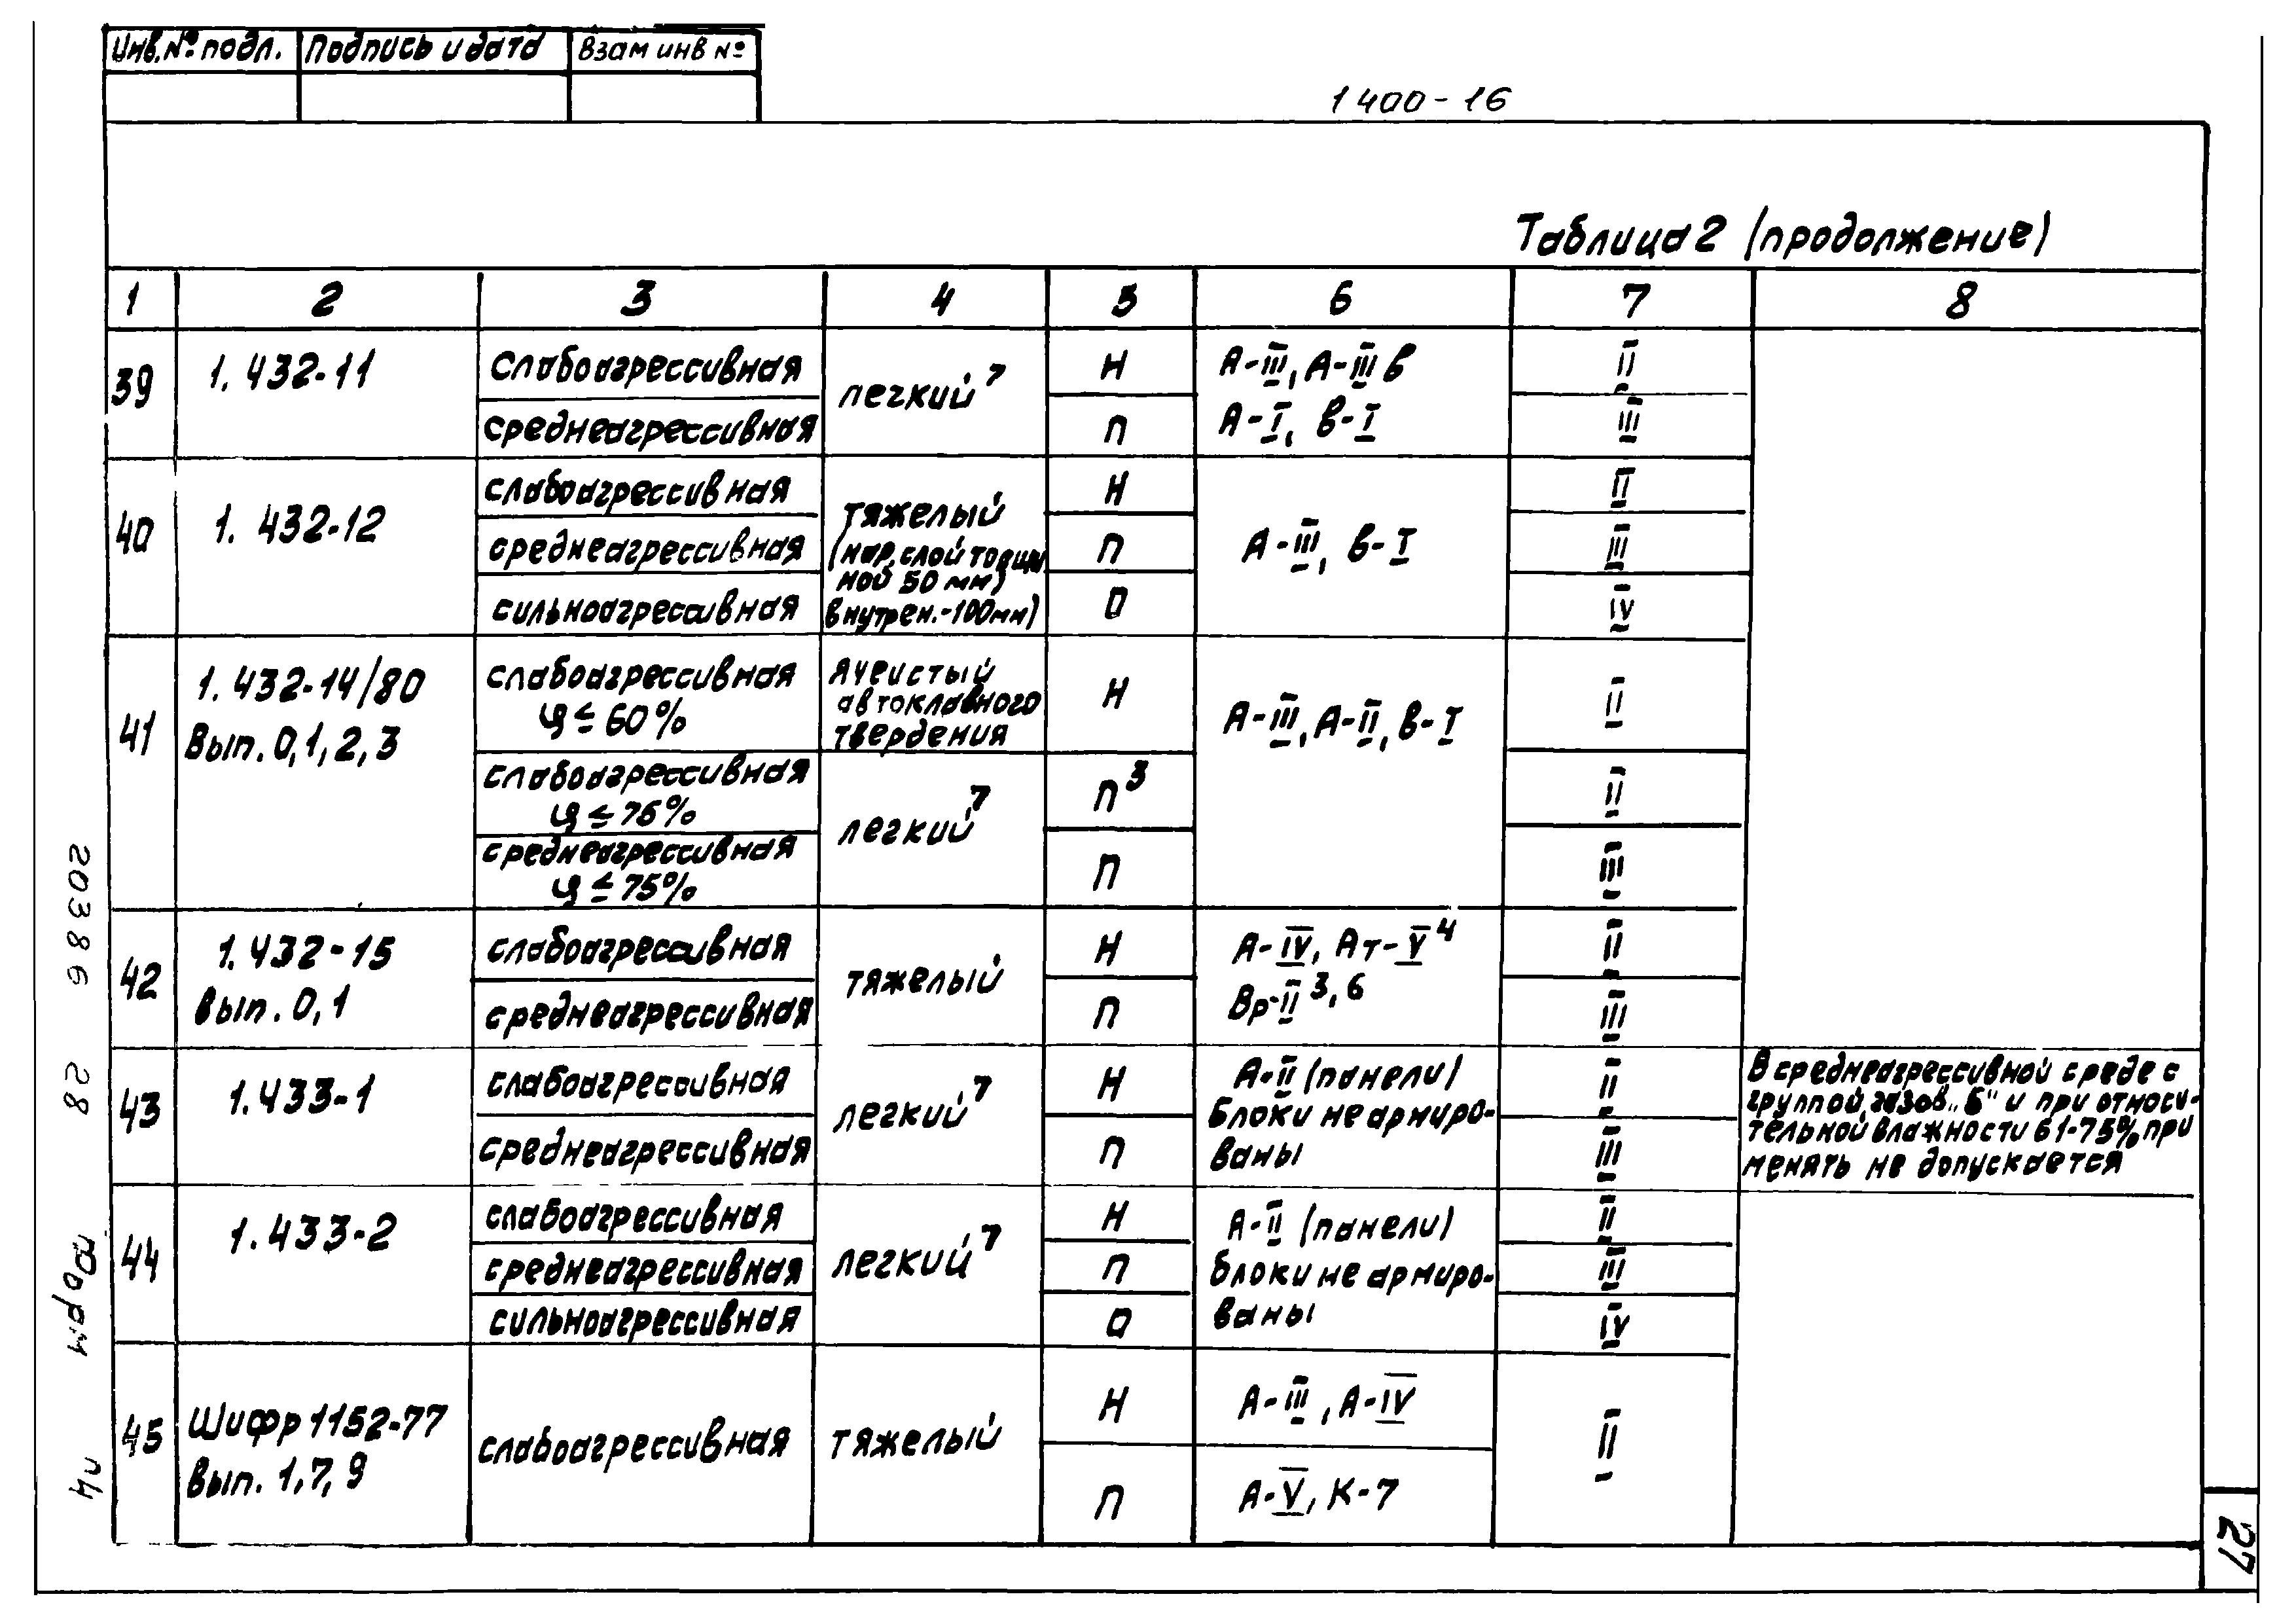 Инв. № подл. Подпись и дата Взам инв №
1400-16
Таблица 2 (продолжение)
1 2 3 4 5 6 7 8
39 1.432-11 слабоагрессивная легкий⁷ Н А-III, А-IIIв II
среднеагрессивная П А-I, В-I III
40 1.432-12 слабоагрессивная тяжелый Н А-III, В-I II
среднеагрессивная (нар. слой толщи П III
ной 50 мм)
сильноагрессивная внутрен.-100мм) О IV
41 1.432-14/80 слабоагрессивная ячеистый Н А-III, А-II, В-I II
Вып. 0,1,2,3 φ ≤ 60% автоклавного
твердения
слабоагрессивная легкий⁷ П³ II
φ ≤ 75%
среднеагрессивная П III
φ ≤ 75%
42 1.432-15 слабоагрессивная тяжелый Н А-IV, Ат-V⁴ II
вып. 0,1 среднеагрессивная П Вр-II 3,6 III
43 1.433-1 слабоагрессивная легкий⁷ Н А-II (панели) II
Блоки не армиро-
среднеагрессивная П ваны III
В среднеагрессивной среде с
группой газов „Б" и при относи-
тельной влажности 61-75% при
менять не допускается
44 1.433-2 слабоагрессивная легкий⁷ Н А-II (панели) II
среднеагрессивная П блоки не армиро- III
сильноагрессивная О ваны IV
45 Шифр 1152-77 слабоагрессивная тяжелый Н А-III, А-IV II
Вып. 1,7,9 П А-V, К-7
20386 28
Форм 4и
27